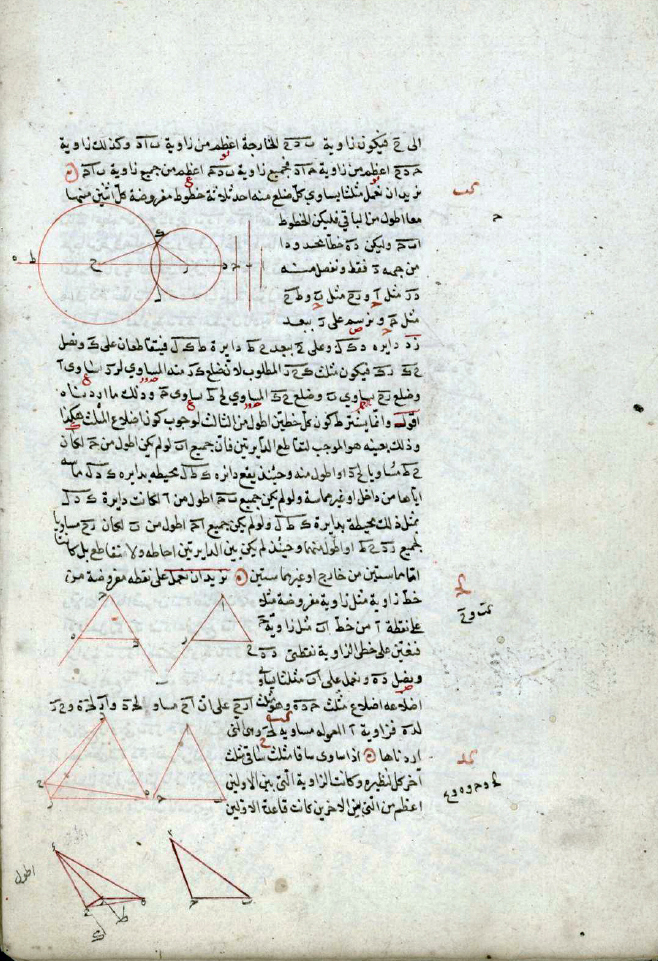 الى ج فيكون زاوية ب د ج الخارجة اعظم من زاوية ب ا د وكذلك زاوية
ج د ح اعظم من زاوية ج ا د فجميع زاوية ب د ج اعظم من جميع زاوية ب ا ج
كب
نريد ان نعمل مثلثا يساوي كل ضلع منه احد ثلاثة خطوط مفروضة كل اثنين منها
معا اطول من الباقي فليكن الخطوط
ا ب ج وليكن د ه خطا محدودا
من جهة د فقط ونفصل منه
د ر مثل ا و ر ح مثل ب و ط ح
مثل ج و نرسم على ر ببعد
ر د دايرة د ك ل وعلى ح ببعد ح ط دايرة ط ك ل فيتقاطعان على ك ونصل
ك ح ك ر فيكون مثلث ك ح ر المطلوب لان ضلع ك ر منه المساوي لـ ر د يساوي ا
وضلع ر ح يساوي ب وضلع ح ك المساوي لـ ح ط يساوي ج وذلك ما اردناه
اقول وانما يشترط كون كل خطين اطول من الثالث لوجوب كون اضلاع المثلث هكذا
وذلك بعينه هو الموجب لتقاطع الدايرتين فان جميع ا ب لو لم يكن اطول من ج لكان
ح ط مساويا لـ ح د او اطول منه وحينئذ يقع دايرة ط ك ل محيطه بدايرة د ك ل مماسة
اياها من داخل او غير مماسة ولو لم يكن جميع ب ج اطول من ا لكانت دايرة د ك ل
بمثل ذلك محيطة بدايرة ط ك ل ولو لم يكن جميع ا ج اطول من ب لكان ر ح مساويا
لجميع ر د ح ط او اطول منهما وحينئذ لم يكن بين الدايرتين احاطه ولا تقاطع بل كانتا
اما متماستين من خارج او غير متماستين نريد ان نعمل على نقطه مفروضة من
كج
خط زاوية مثل زاوية مفروضة مثلا
على نقطة ا من خط ا ب مثل زاوية ج
فنعين على خطي الزاوية نقطتي د ه
ونصل د ه ونعمل على ا ب مثلثا يساوي
اضلاعه اضلاع مثلث ج د ه وهو مثلث
فزاوية ا المعموله مساويه لـ ج وهي التي
اردناها اذا ساوى ساقا مثلث ساقي مثلث
كد
آخر كل لنظيره وكانت الزاوية التي بين الاولين
اعظم من التي بين الاخرين كانت قاعدة الاولين
اطول